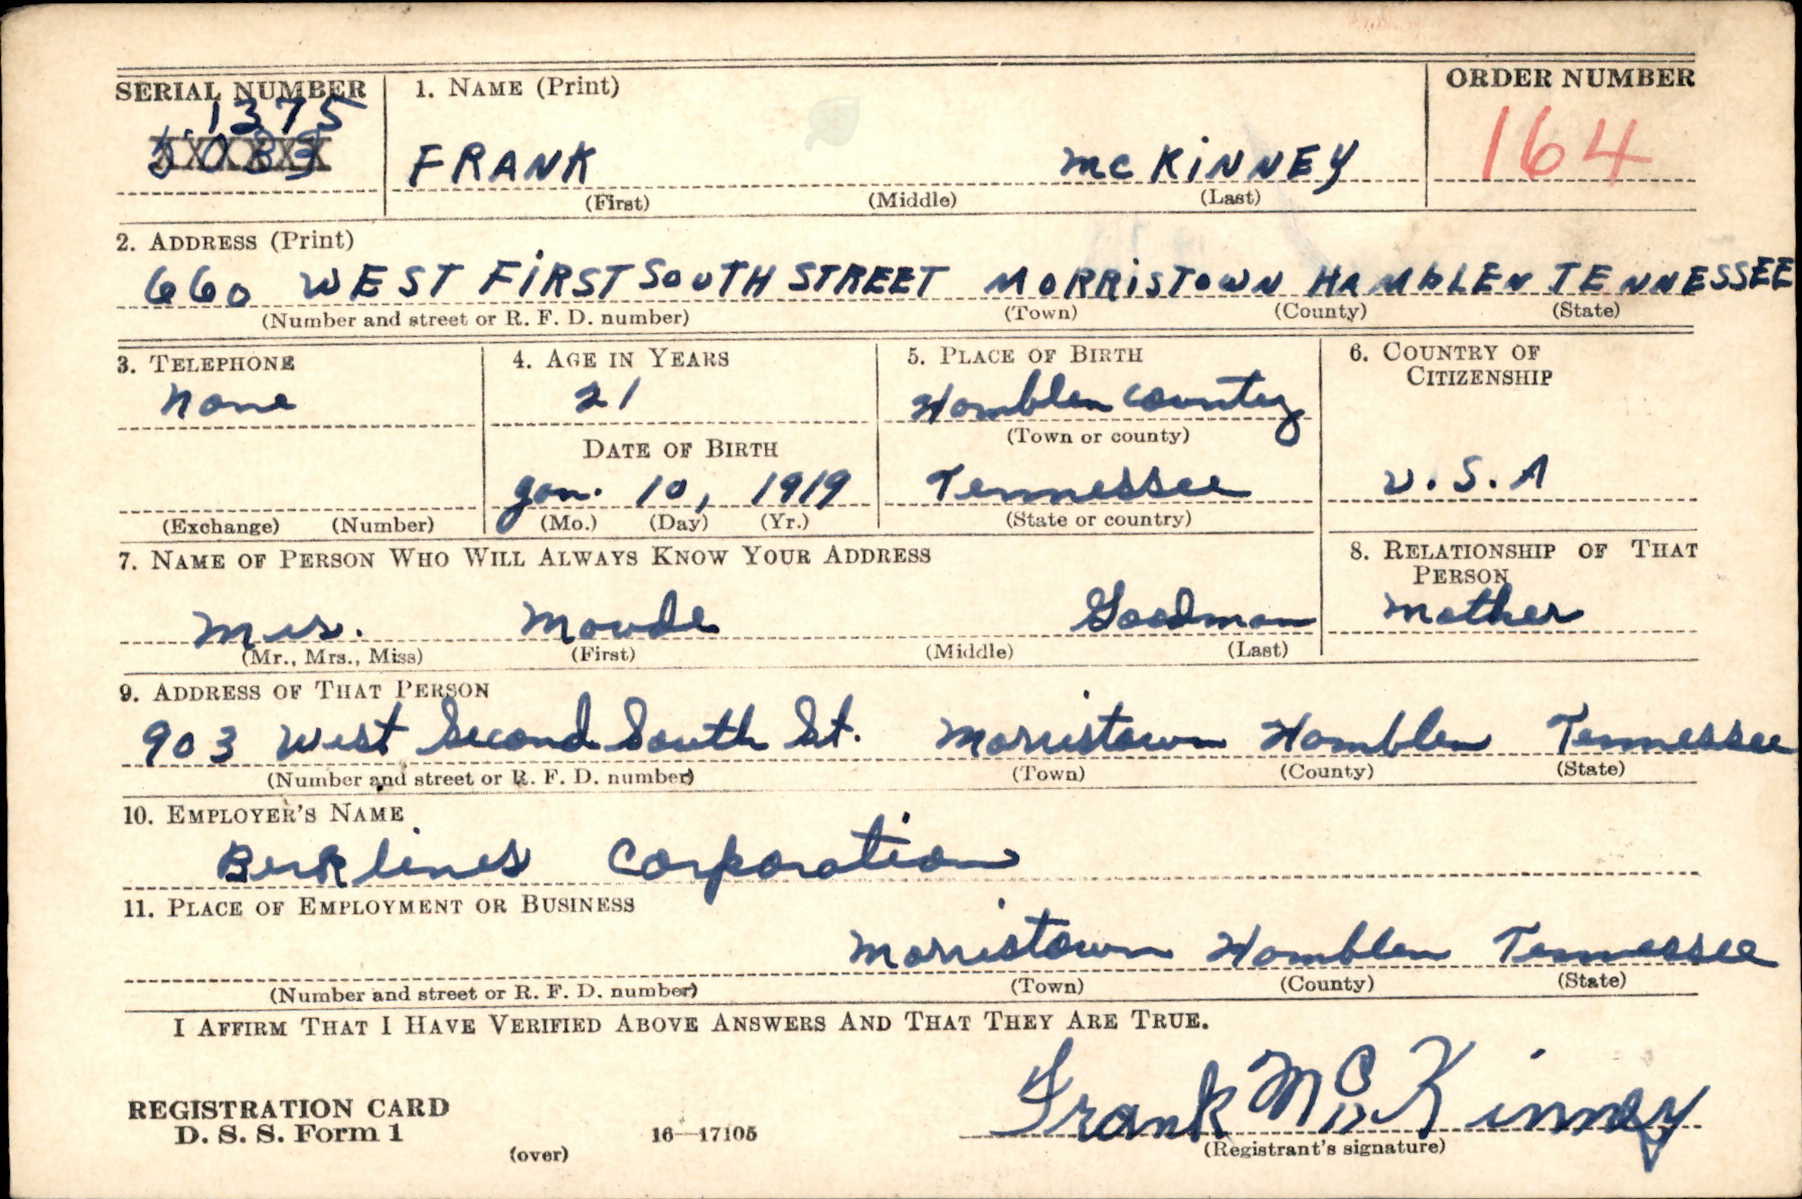 SERIAL NUMBER 1. NAME (Print) ORDER NUMBER
1375
FRANK McKINNEY 164
(First) (Middle) (Last)
2. ADDRESS (Print)
660 WEST FIRST SOUTH STREET MORRISTOWN HAMBLEN TENNESSEE
(Number and street or R. F. D. number) (Town) (County) (State)
3. TELEPHONE 4. AGE IN YEARS 5. PLACE OF BIRTH 6. COUNTRY OF
CITIZENSHIP
None 21 Hamblen County
(Town or county)
DATE OF BIRTH
Jan. 10, 1919 Tennessee U.S.A
(Exchange) (Number) (Mo.) (Day) (Yr.) (State or country)
7. NAME OF PERSON WHO WILL ALWAYS KNOW YOUR ADDRESS 8. RELATIONSHIP OF THAT
PERSON
Mrs. Maude Goodman Mother
(Mr., Mrs., Miss) (First) (Middle) (Last)
9. ADDRESS OF THAT PERSON
903 West Second South St. Morristown Hamblen Tennessee
(Number and street or R. F. D. number) (Town) (County) (State)
10. EMPLOYER'S NAME
Berklines Corporation
11. PLACE OF EMPLOYMENT OR BUSINESS
Morristown Hamblen Tennessee
(Number and street or R. F. D. number) (Town) (County) (State)
I AFFIRM THAT I HAVE VERIFIED ABOVE ANSWERS AND THAT THEY ARE TRUE.
Frank McKinney
REGISTRATION CARD
D. S. S. Form 1 16—17105
(over) (Registrant's signature)